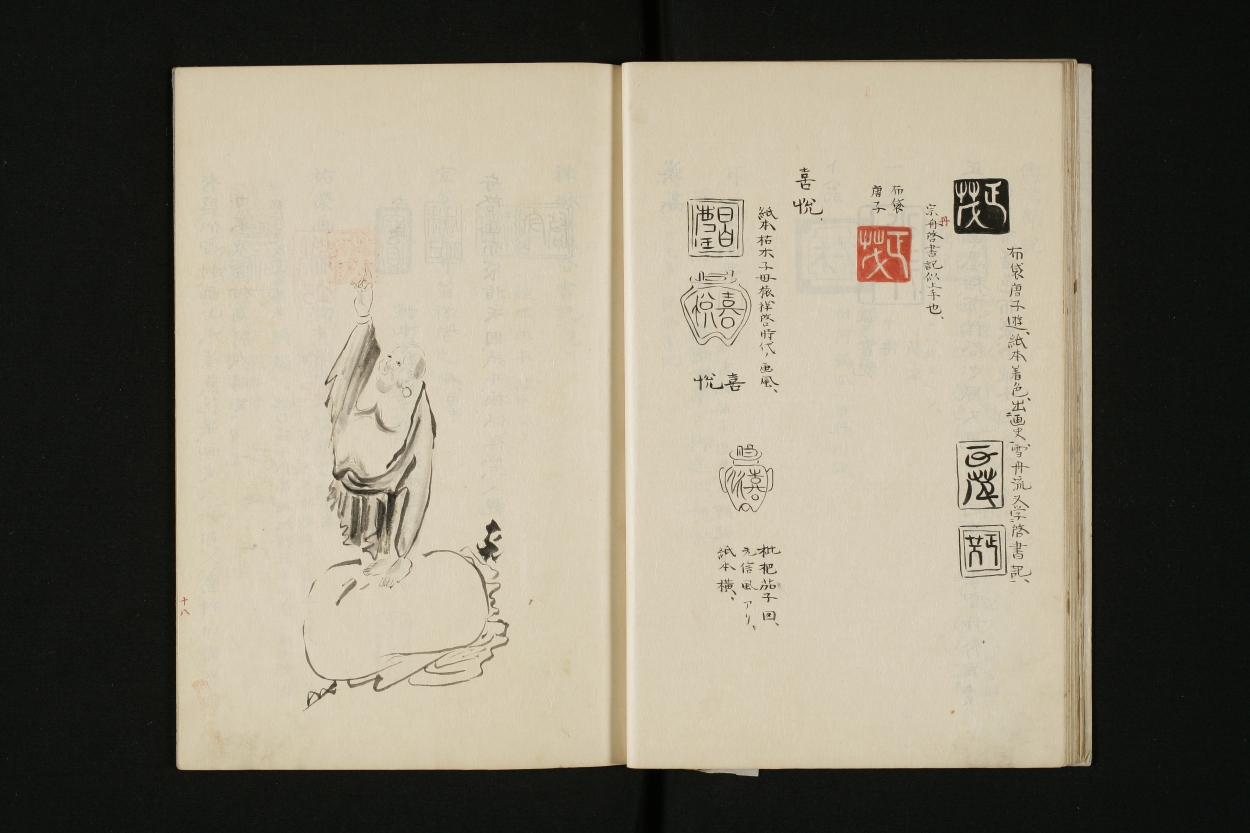 正茂
布袋唐子遊、紙本著色、出画史、雪舟流又学啓書記、
正茂
宗丹啓書記似上手也、
丹
布袋
唐子
正茂
喜悦、
紙本枯木子母猿祥啓時代ノ画風、
喜悦
喜悦
枇杷茄子図、
元信風アリ、
紙本横、
十八